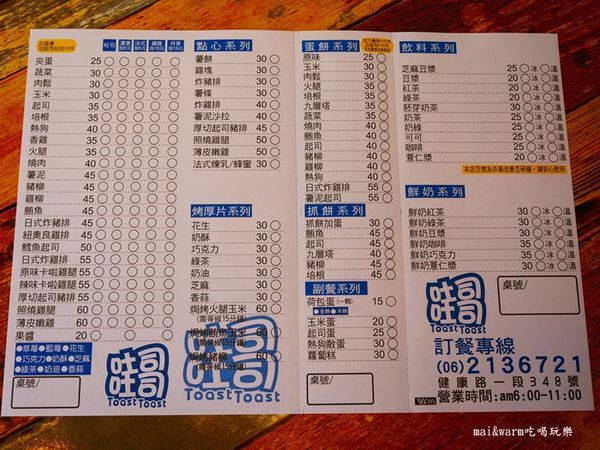 吐司
漢堡 加5元
法式 加15元
總匯 加15元
丹麥 加10元
夾蛋 25
蔬菜 30
肉鬆 30
玉米 30
起司 35
培根 40
熱狗 40
香雞 40
火腿 35
燒肉 40
薯泥 40
豬柳 45
雞柳 45
鮪魚 45
日式炸豬排 45
紐奧良雞排 45
鱈魚起司 50
日式炸雞排 50
原味卡啦雞腿 55
辣味卡啦雞腿 55
厚切起司豬排 55
照燒雞腿 60
薄皮嫩雞 60
果醬 20
●草莓 ●藍莓 ●花生
●巧克力 ●奶酥 ●芝麻
●綠茶 ●奶油 ●香蒜
桌號/
哇司
Toast Toast
點心系列
薯餅 30
雞塊 30
炸豬排 30
薯條 30
炸雞排 40
薯泥沙拉 40
厚切起司豬排 45
照燒雞腿 50
薄皮嫩雞 50
法式煉乳/蜂蜜 30
烤厚片系列
花生 30
奶酥 30
巧克力 30
綠茶 30
奶油 30
芝麻 30
香蒜 30
焗烤火腿玉米 60
(需等候15分鐘)
焗烤鮪魚玉米 60
(需等候15分鐘)
焗烤豬柳 60
(需等候15分鐘)
蛋餅系列
原味 25
玉米 30
肉鬆 30
火腿 35
培根 35
九層塔 35
蔬菜 35
燒肉 40
鮪魚 40
起司 35
豬柳 40
雞柳 40
熱狗 40
日式炸雞排 50
薯泥起司 50
抓餅系列
抓餅加蛋 30
鮪魚 45
起司 40
九層塔 40
豬柳 45
培根 45
副餐系列
荷包蛋(一顆) 15
●全熟 ●半熟
玉米蛋 30
起司蛋 30
熱狗散蛋 30
蘿蔔糕 30
桌號/
飲料系列
芝麻豆漿 25 冰 溫
豆漿 20 冰 溫
紅茶 20 冰 溫
綠茶 20 冰 溫
胚芽奶茶 30 冰 溫
奶茶 25 冰 溫
奶綠 25 冰 溫
可可 25 冰 溫
咖啡 25 冰 溫
薏仁漿 25 冰 溫
本店豆漿為非基改黃豆研磨,請安心飲用
鮮奶系列
鮮奶紅茶 30 冰 溫
鮮奶綠茶 30 冰 溫
鮮奶豆漿 30 冰 溫
鮮奶咖啡 35 冰 溫
鮮奶巧克力 35 冰 溫
鮮奶薏仁漿 30 冰 溫
哇司
Toast Toast
桌號/
訂餐專線
(06)2136721
健康路一段348號
營業時間:am6:00-11:00
mai&warm吃喝玩樂